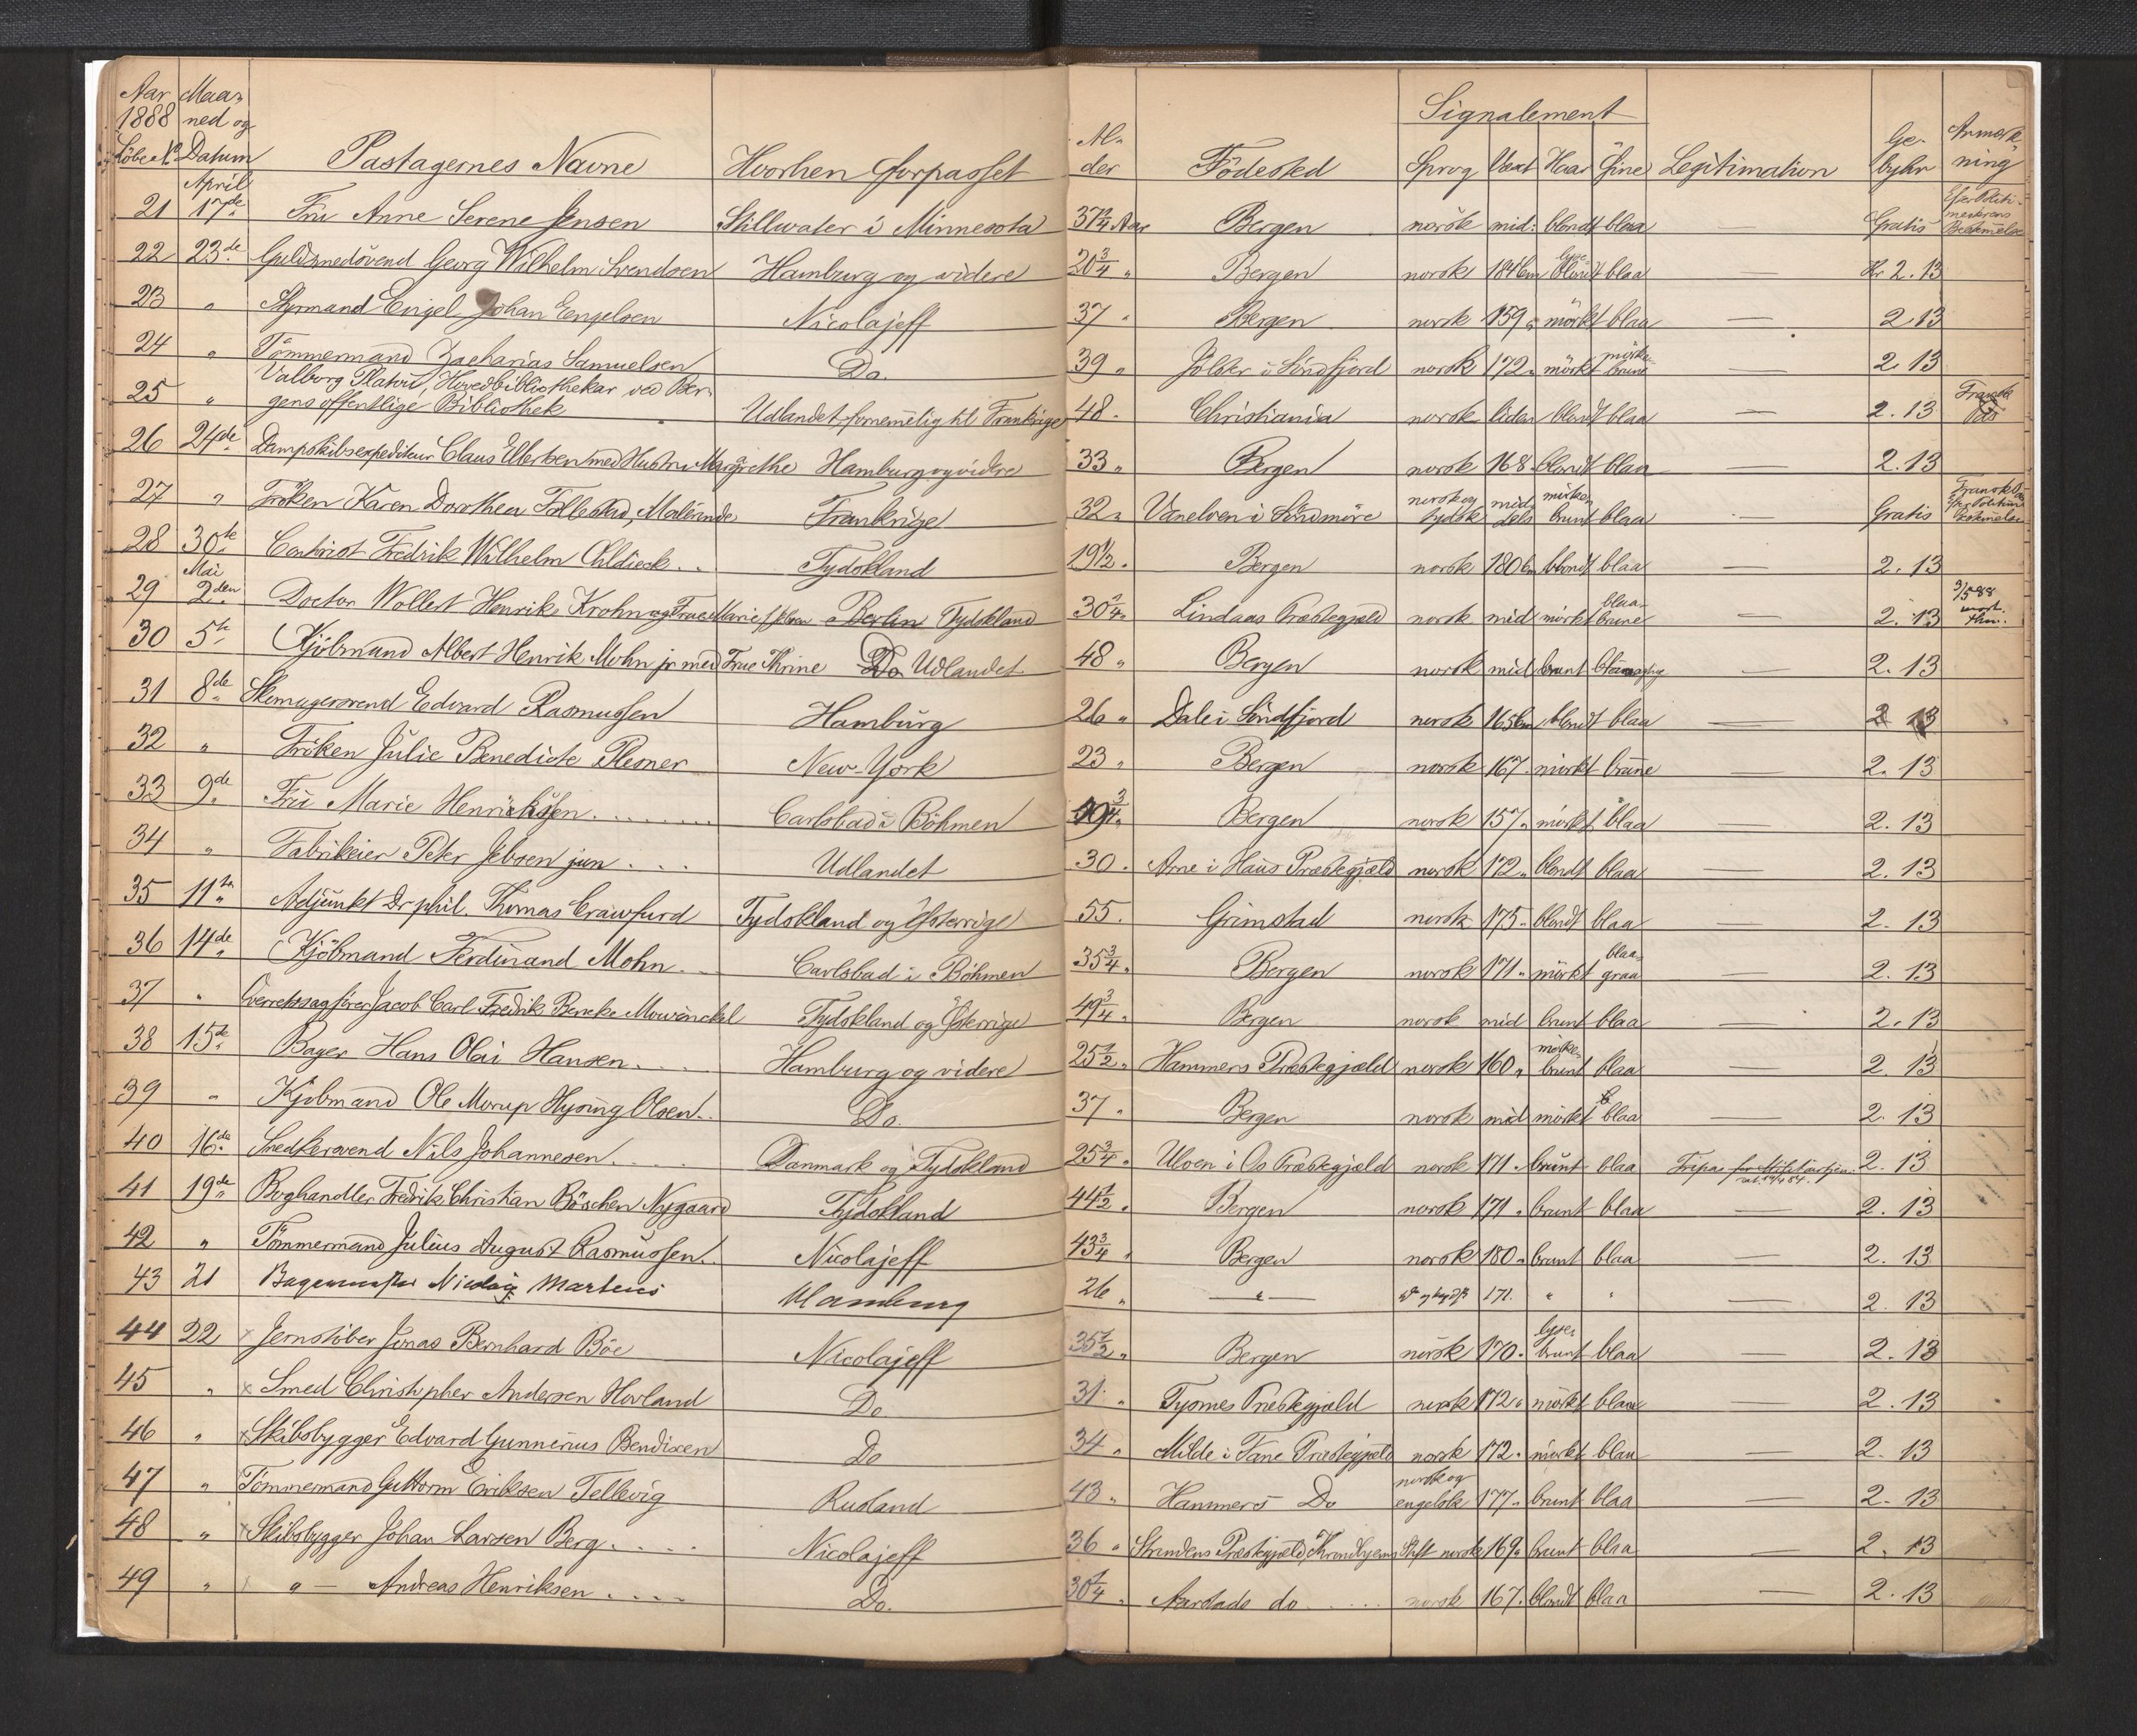 Aar 1888 Löbe No Maaned og Datum Pastagernes Navne Hvorhen forpasset Alder Födested Signalement Sprog Vext Haar Öine Legitimation Gebyhr Anmærkning
April
21 17de Fru Anne Serene Jensen Stillwater i Minnesota 37 1/4 Aar Bergen norsk mid: blondt blaa — Gratis
22 23de Guldsmedsvend Georg Wilhelm Svendsen Hamburg og videre 20 3/4 " Bergen norsk lyse blondt blaa — Kr 2.13
23 " Styrmand Engel Johan Engelsen Nicolajeff 37 " Bergen norsk 159 " mörkt blaa — 2.13
24 " Tömmermand Zacharias Samuelsen Do. 39 " Jölster i Söndfjord norsk 172 " mörkt mörke brune — 2.13
25 " Valborg Platou, Hovedbibliothekar ved Bergens offentlige Bibliothek Udlandet fornemelig til Frankrige 48 " Christiania norsk liden blondt blaa — 2.13 Fransk Visa
26 24de Dampskibsexpediteur Claus Ellertsen med Hustru Margrethe Hamburg og videre 33 " Bergen norsk 168 " blondt blaa — 2.13
27 " Fröken Karen Dorothea Follestad, Malerinde Frankrige 32 " Vanelven i Söndmöre norsk og tydsk middels mörkebrunt blaa Gratis
28 30te Contorist Fredrik Wilhelm Ohldieck Tydskland 19 1/2 " Bergen norsk 180 Cm blondt blaa — 2.13
Mai
29 2den Doctor Wollert Henrik Krohn og Frue Marie Berlin Tydskland 30 1/4 " Lindaas Præstegjæld norsk mid mörkt blaa brune — 2.13 3/5 88
30 5te Kjöbmand Albert Henrik Mohn jr med Frue Thrine Do Udlandet 48 " Bergen norsk mid brunt — 2.13
31 8de Skomagersvend Edvard Rasmussen Hamburg 26 " Dale i Söndfjord norsk 165 Cm blondt blaa — 2 13
32 " Fröken Julie Benedicte Plesner New-York 23 " Bergen norsk 167 " mörkt brune — 2.13
33 9de Fru Marie Henrichsen Carlsbad i Böhmen 49 3/4 " Bergen norsk 157 " mörkt blaa — 2.13
34 " Fabrikeier Peter Jebsen jun Udlandet 30 " Arne i Haus Præstegjæld norsk 172 " blondt blaa — 2.13
35 11te Adjunkt Dr phil. Thomas Crawfurd Tydskland og Österrige 55 " Grimstad norsk 175 " blondt blaa — 2.13
36 14de Kjöbmand Ferdinand Mohn Carlsbad i Böhmen 35 3/4 " Bergen norsk 171 " mörkt blaagraa — 2.13
37 " Overretssagförer Jacob Carl Fredrik Beneke Mowinckel Tydskland og Österrige 49 3/4 " Bergen norsk mid brunt blaa — 2.13
38 15de Bager Hans Olai Hansen Hamburg og videre 25 1/2 " Hammers Præstegjæld norsk 160 " mörkebrunt blaa — 2.13
39 " Kjöbmand Ole Morup Hysing Olsen Do. 37 " Bergen norsk mid mörkt blaa — 2.13
40 16de Snedkersvend Nils Johannesen Danmark og Tydskland 25 3/4 " Ulven i Os Præstegjæld norsk 171 " brunt blaa 2.13
41 19de Boghandler Fredrik Christian Böschen Nygaard Tydskland 44 1/2 " Bergen norsk 171 " brunt blaa — 2.13
42 " Tömmermand Julius August Rasmussen Nicolajeff 43 3/4 " Bergen norsk 180 " brunt blaa — 2.13
43 21 Bagermester Nicolay Martens Hamburg 26 " — " — 171. " " — 2.13
44 22 x Jernstöber Jonas Bernhard Böe Nicolajeff 35 1/2 " Bergen norsk 170 " lysebrunt blaa — 2.13
45 " x Smed Christopher Andersen Hovland Do 31 " Tysnes Præstegjæld norsk 172 " mörkt blaa — 2.13
46 " x Skibsbygger Edvard Gunnerius Bendixen Do 34 " Milde i Fane Præstegjæld norsk 172 " mörkt blaa — 2.13
47 " Tömmermand Guttorm Eriksen Tellevig Rusland 43 " Hammers Do norsk og engelsk 177 " brunt blaa — 2.13
48 " x Skibsbygger Johan Larsen Berg Nicolajeff 36 " Strindens Præstegjæld, Throndhjems Stift norsk 169 " brunt blaa — 2.13
49 " x " — Andreas Henriksen Do. 30 1/4 " Aarstads do norsk 167 " blondt blaa — 2.13